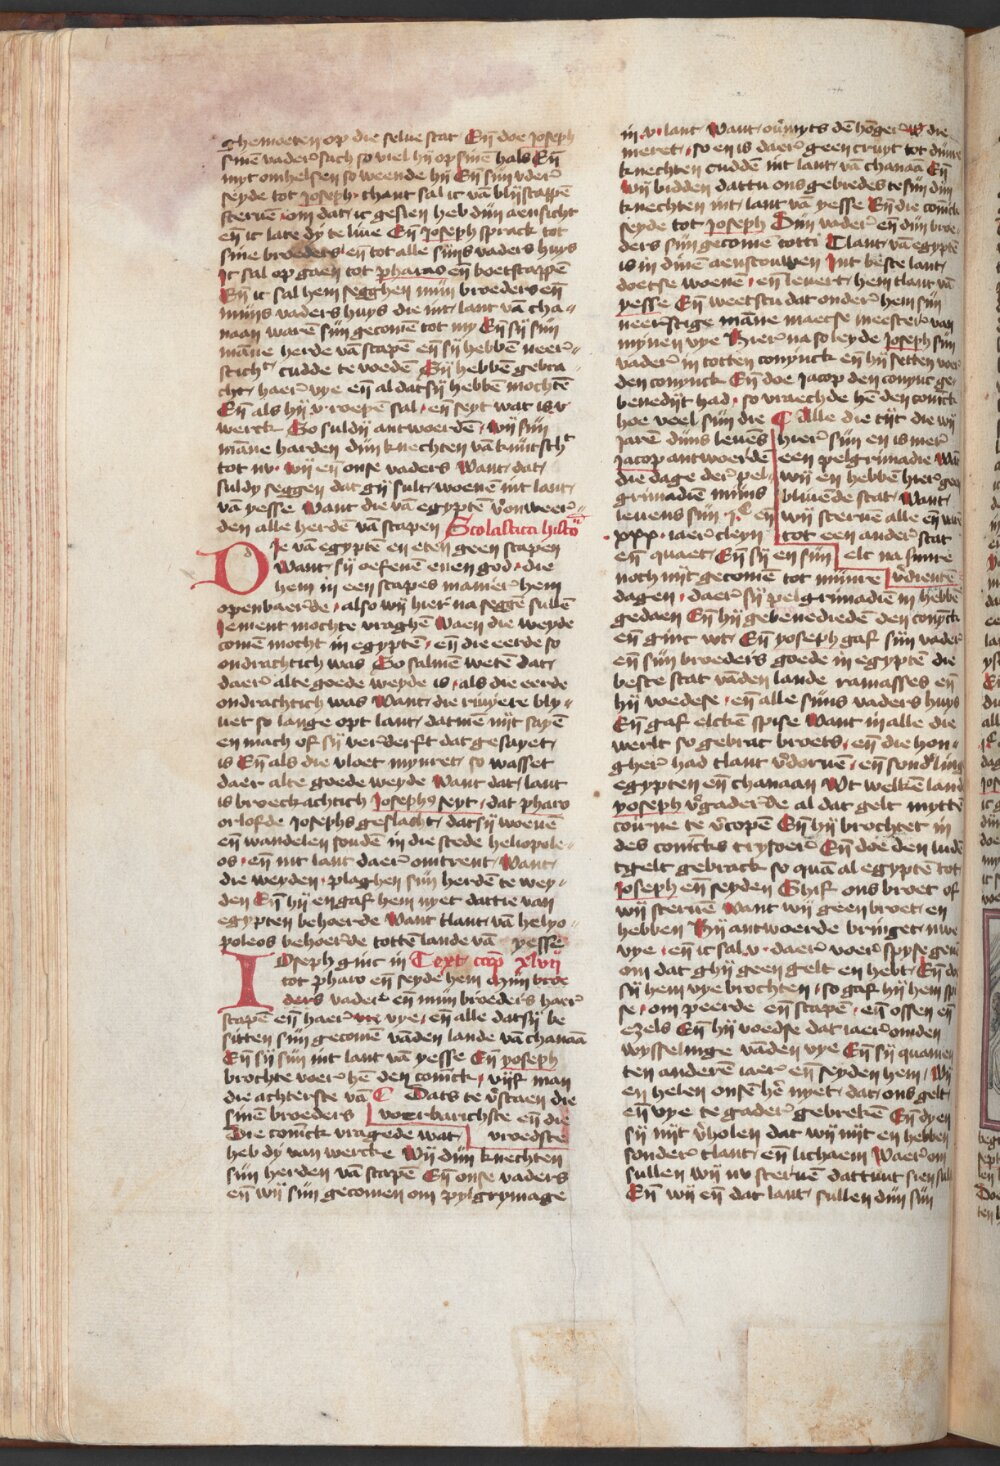 Themoeten op die selue stat Eñ doe Joseph
sinē vader̄ sach so viel hij op sinē hals Eñ
myt omhelsen so weende hij Eñ sijn vder̄
seyde tot Joseph · thant sal ic vā blijscappē
steruē · om dat / ic gesien heb dijn aensicht
eñ ic late dy te liue Eñ Joseph sprack tot
sine broeders / eñ tot alle sijns vaders huys
Jc sal op gaen tot pharao eñ boetscappē
Eñ ic sal hem segghen mijn broeders eñ
mijns vaders huys die int / lant vā cha-
naan warē sijn gecomē tot my Eñ sij sijn
māne herde vā scapē eñ sij hebbē neer-
stich cudde te voedē Eñ hebbē gebra-
cht / haer̄ vye eñ al dat sij hebbē mochtē
Eñ als hij v roepē sal / eñ seyt wat is v
werck So suldij antwoerdē / wij sijn
māne harden dijn knechten vā kintsch
tot nv · wij eñ onse vaders Want / dat /
suldy seggen dat gij sult / woenē int lant /
vā yesse Want die vā egyptē v̄onweer-
den alle herdē vā scapen Scolastica histo
Die vā egyptē en eten geen scapen
Want / sij oefenē enen god · die
hem in een scapes manier̄ hem
openbaerde / also wij hier na seggē sullē
Jement mochte vraghē Waen die weyde
comē mocht in egyptē / eñ die eerde so
ondrachtich was So salmē wetē dat /
daer̄ alte goede weyde is / als die eerde
ondrachtich was Want / die riuyere bly-
uet so lange opt lant / datmē nijt sayē
en mach of sij verderft dat gesayet /
is Eñ als die vloet mynret / so wasset
daer alte goede weyde Want dat / lant
is broechachtich Josephs seyt / dat pharo
orlofde Josephs geslacht / dat sij woenē
eñ wandelen soudē in die stede heliopole-
os / eñ int lant daer̄ omtrent / Want /
die weyden · plaghen sijn herdē te wey-
den Eñ hij en gaf hem nyet dattie van
egypten behoerde Want tlant / vā helyo-
poleos behoerde tottē lande vā yesse
Joseph ginc in Text cap̄ xlvij
tot pharo eñ seyde hem Mijn broe
ders vader̄ eñ mijn broeders haer̄
scapē eñ haer̄ vye / eñ alle dat sij be
sitten sijn gecomē vāden lande vā chanaā
Eñ sij sijn int lant vā yesse Eñ yoseph
brochte voer̄ hē den conīck / vijf man
die achterste vā Dats te v̄staen die
sinē broeders voerbarichste eñ die
Die conīck vragede wat / vroedste
heb dy van wercke Wij dijn knechten
sijn herden vā scapē Eñ onse vaders
eñ wij sijn gecomen om pylgrymage
in v · lant / Want / ouermyts dē hōger̄ die
meret / so en is daer̄ geen cruyt tot dijnre
knechten cuddē int lant / vā chanaā Eñ
wij bidden dattu ons gebiedes te sijn dijn
knechten int / lant vā yesse Eñ die conīck
seyde tot Joseph Dijn vader̄ eñ dijn broe-
ders sijn gecomē tot ti Tlant / vā egyptē
is in dinē aenscouwen Int beste lant /
doetse woenē / eñ leuert / hem tlant vā
yesse Eñ weetstu dat onder̄ hem sijn
neer̄stige māne maecse meester̄ van
mynen vye Hier̄ na so leyde Joseph sijn
vader̄ in totten conynck eñ hij setten voer
den conynck Eñ doe Jacop den conync ge-
benedijt had / so vraechde hē den conīck
hoe veel sijn die Alle die tijt die wij
jarē dijns leuēs hier̄ sijn en is mer̄
Jacop antwoerdē een pelgrimadie Wāt
die dage der̄ pel- wij en hebbē hier̄ geen
grimadiē mijns bliuēde stat / Want /
leuens sijn Jc eñ wij steruē alle eñ varē
xxx · iaer̄ cleyn tot een ander̄ stat
eñ quaet / Eñ sij en sijn elc na sijnre
noch nijt gecomē tot mijnre v̄dientē
dagen · daer̄ sij pelgrimadiē in hebbē
gedaen Eñ hij gebenediedē den conynck
eñ ginc wt / Eñ yoseph gaf sijn vader
eñ sijn broeders goede in egyptē die
beste stat vāden lande ramasses eñ
hij voedese / eñ alle sijns vaders huys
Eñ gaf elckē spise Want in alle die
werlt so gebrac broets / eñ die hon-
gher̄ had tlant v̄doruē / eñ sonderling
egypten eñ chanaan Wt welkē land
yoseph v̄gaderde al dat gelt mytten
coürne te v̄copē Eñ hij brochtet in
des conīcks tryssoer̄ Eñ doe den ludē
tgelt gebrack so quā al egyptē tot
Joseph eñ seyden Ghif ons broet of
wij steruē Want wij geen broet / en
hebben Hij antwoerde bringet / uwe
vye / eñ ic sal v · daer̄ voer̄ spyse geuē
om dat ghij geen gelt en hebt / Eñ do
sij hem vye brochten / so gaf hij hem spi
se / om peerde eñ scapē / eñ ossen eñ
ezels Eñ hij voedse dat iaer̄ om den
wysselinge vāden vye Eñ sij quamen
ten anderē iaer̄ eñ seyden hem / Wij
en helen onsē hē nyet / dat / ons gelt /
eñ vye te gader̄ gebrekē Eñ dy en
sij nijt v̄holen dat wij nijt en hebben
sonder̄ tlant / eñ lichaem Waer̄ om
sullen wij nv steruē dattuut sien sul
Eñ wij eñ dat lant / sullen dijn sijn